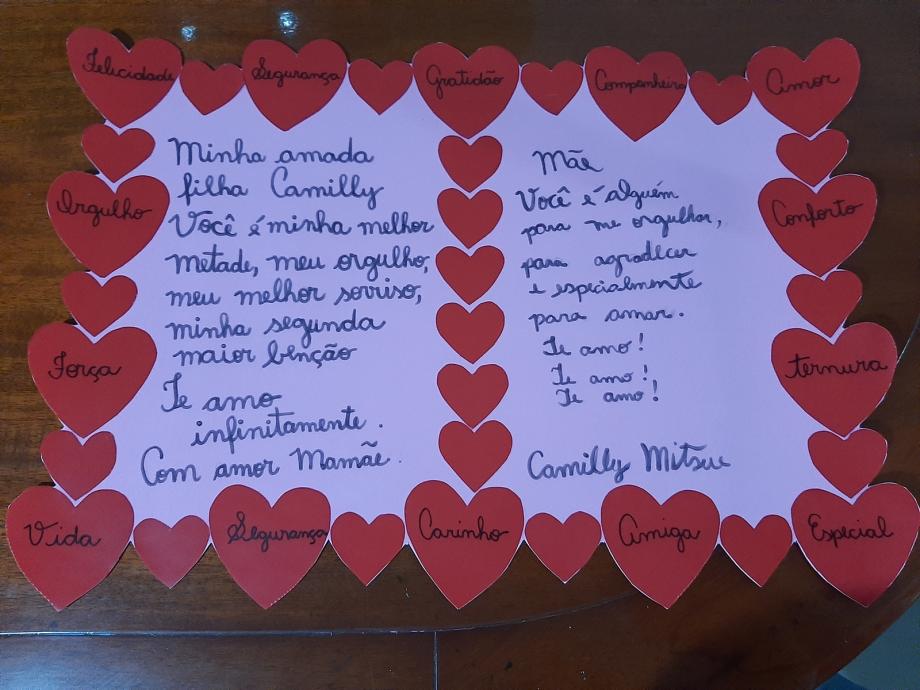 Felicidade
Segurança
Gratidão
Companheira
Amor
Orgulho
Força
Vida
Minha amada
filha Camilly
Você é minha melhor
metade, meu orgulho,
meu melhor sorriso,
minha segunda
maior benção
Te amo
infinitamente.
Com amor Mamãe.
Mãe
Você é alguém
para me orgulhar,
para agradecer
e especialmente
para amar.
Te amo!
Te amo!
Te amo!
Camilly Mitsue
Conforto
Ternura
Segurança
Carinho
Amiga
Especial